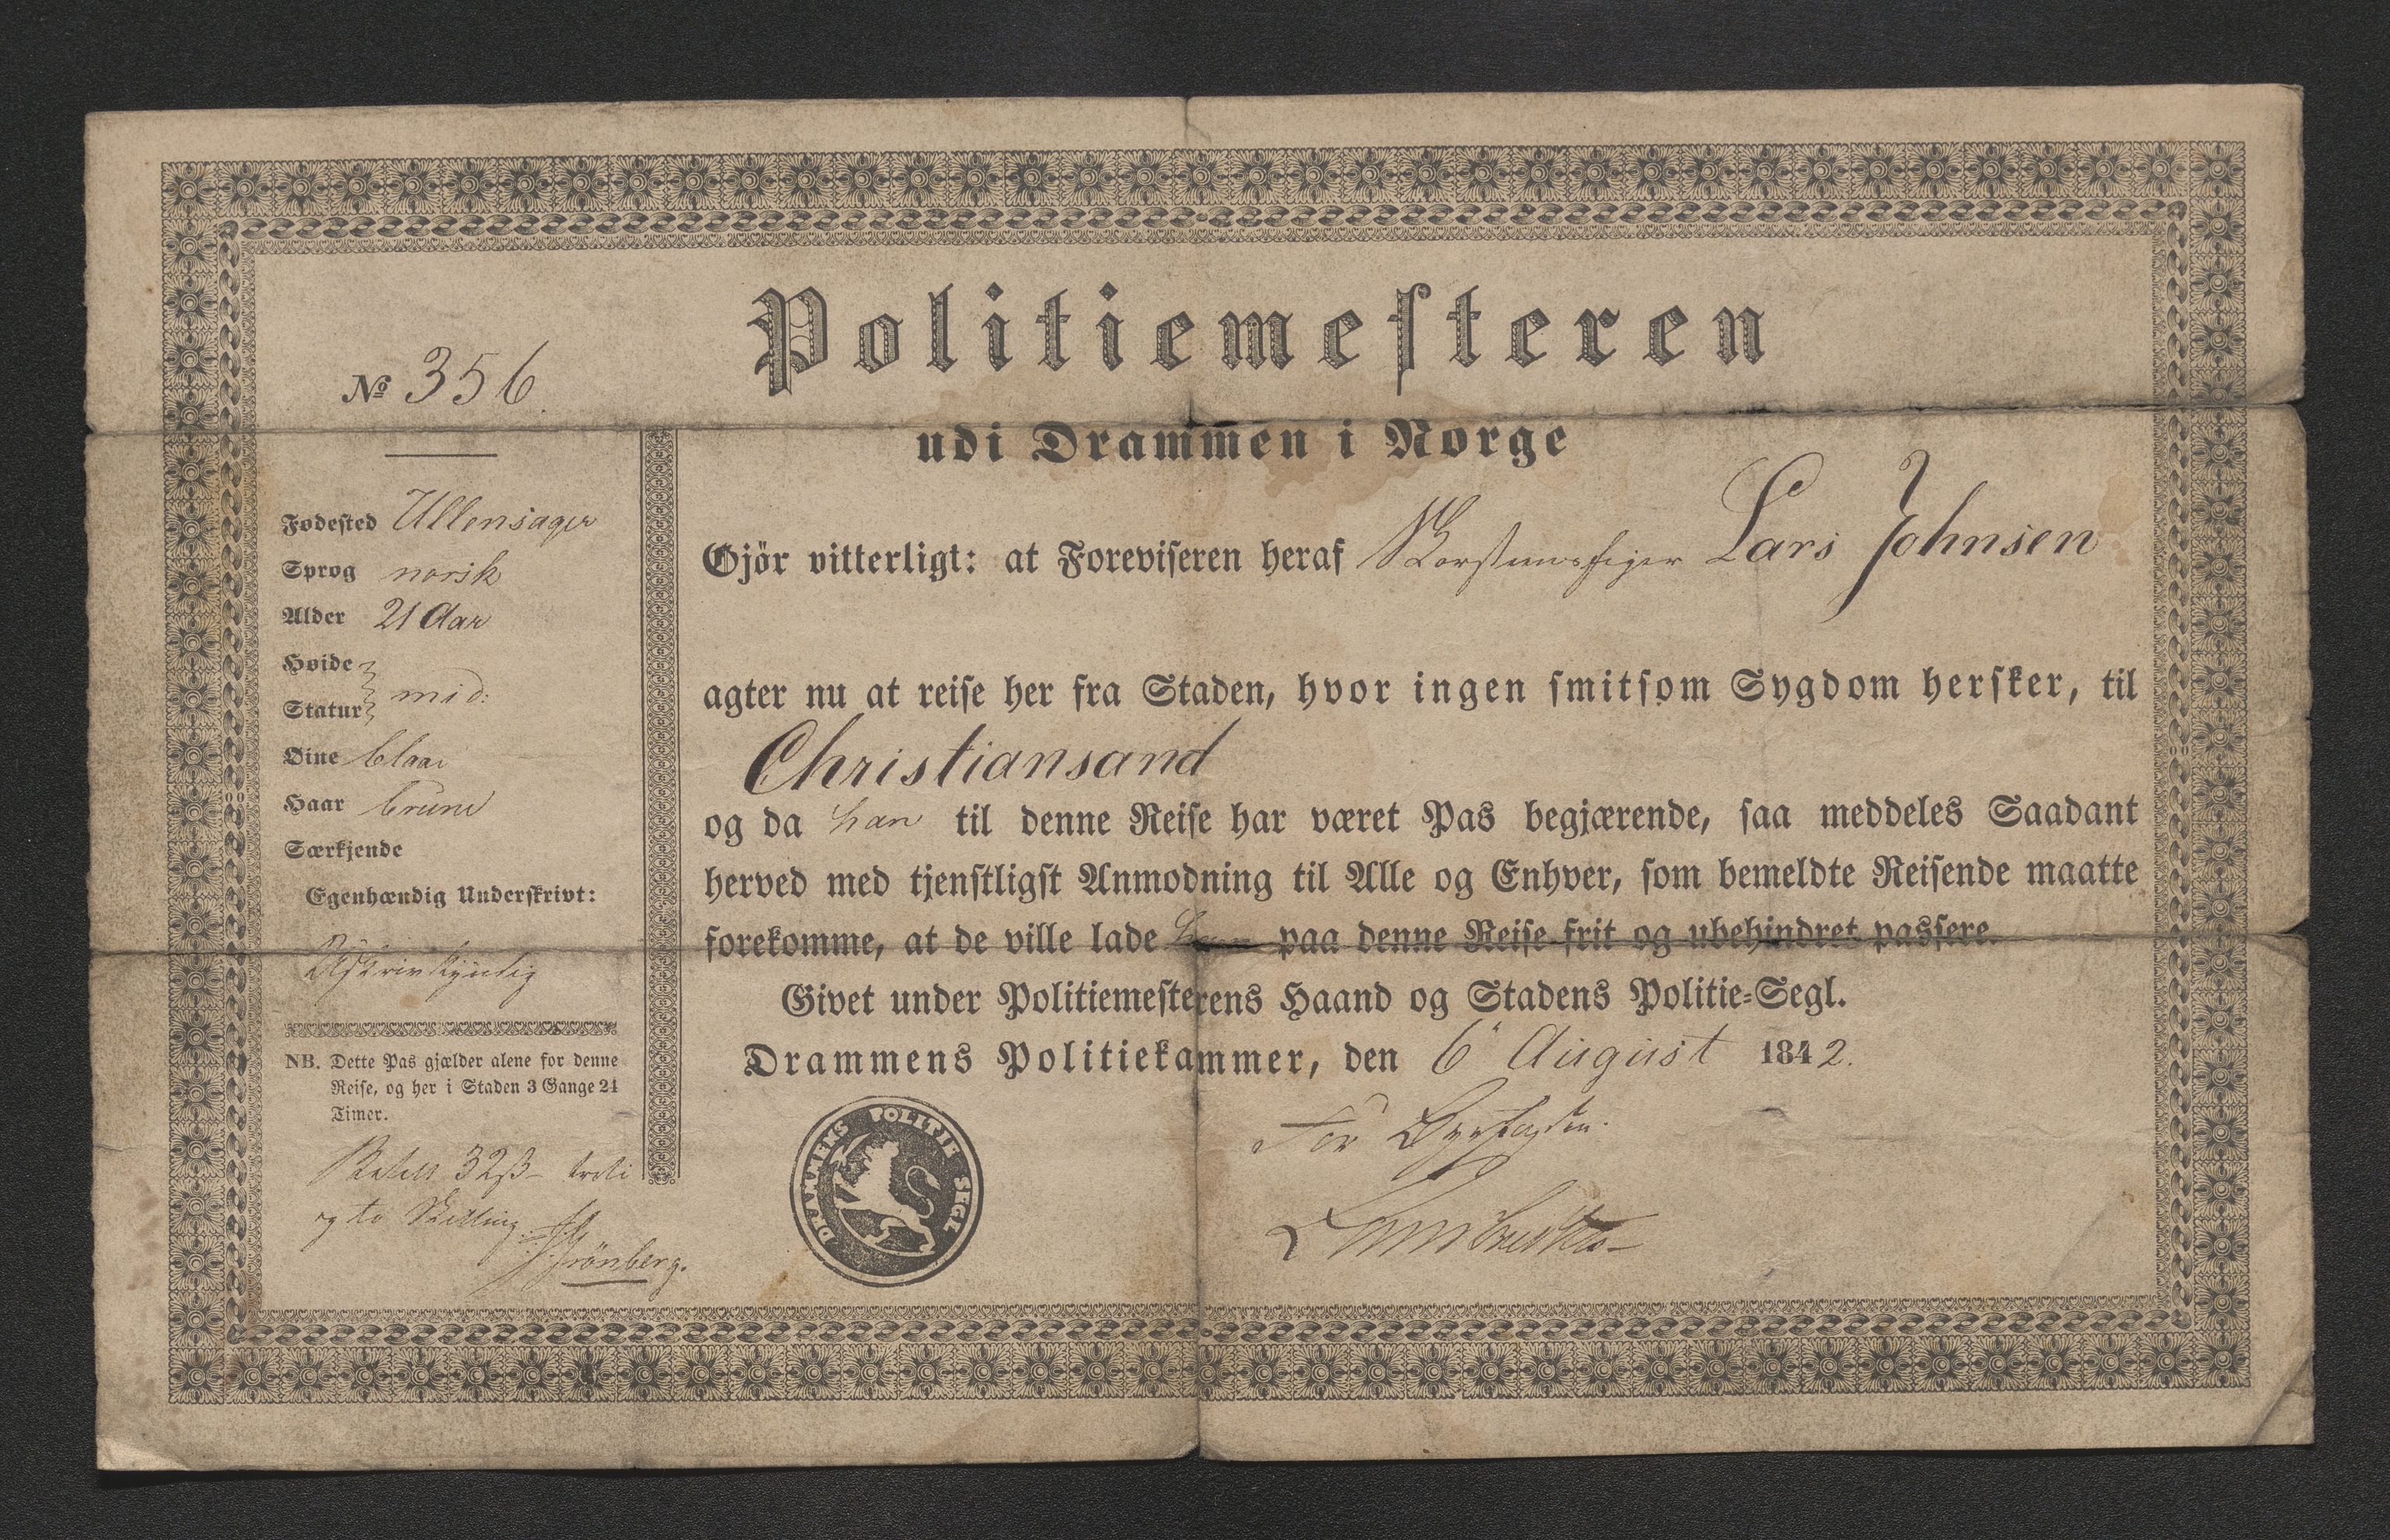 Politiemesteren
udi Drammen i Norge
No 356.
Fødested Ullensager
Sprog norsk
Alder 21 Aar
Høide
Statur mid:
Øine blaae
Haar brune
Særkjende
Egenhændig Underskrivt:
Uskrivkyndig
NB. Dette Pas gjælder alene for denne
Reise, og her i Staden 3 Gange 24
Timer.
Betalt 32ß – treti
og to Skilling
Grönberg.
Gjör vitterligt: at Foreviseren heraf Skorstensfeier Lars Johnsen
agter nu at reise her fra Staden, hvor ingen smitsom Sygdom hersker, til
Christiansand
og da han til denne Reise har været Pas begjærende, saa meddeles Saadant
herved med tjenstligst Anmodning til Alle og Enhver, som bemeldte Reisende maatte
forekomme, at de ville lade ham paa denne Reise frit og ubehindret passere.
Givet under Politiemesterens Haand og Stadens Politie-Segl.
Drammens Politiekammer, den 6 August 1842.
For Byefogden.
DRAMMENS POLITIE SEGL